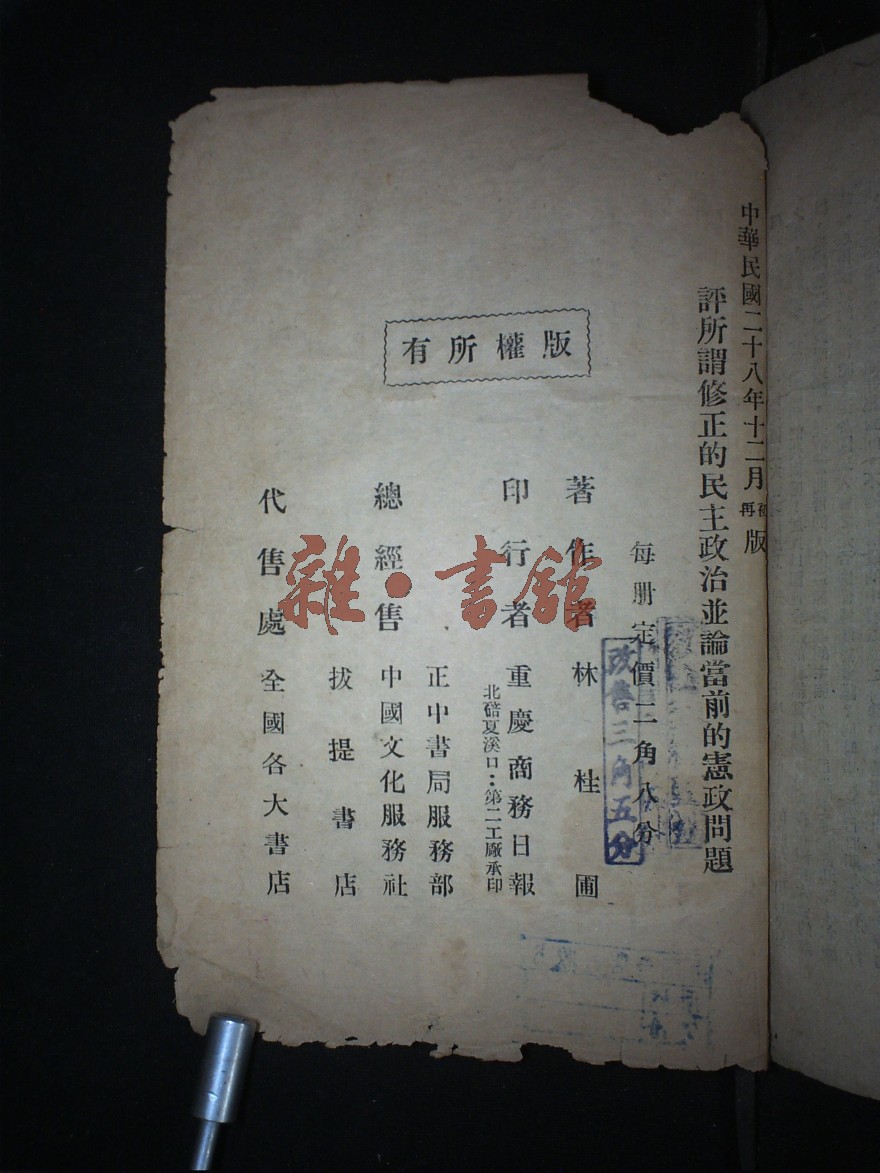 中華民國二十八年十二月再初版
評所謂修正的民主政治並論當前的憲政問題
每册定價二角八分
改售三角五分
著作者林桂圃
印行者重慶商務日報
北碚夏溪口：第二工廠承印
正中書局服務部
總經售中國文化服務社
拔提書店
代售處全國各大書店
版權所有
雜·書館